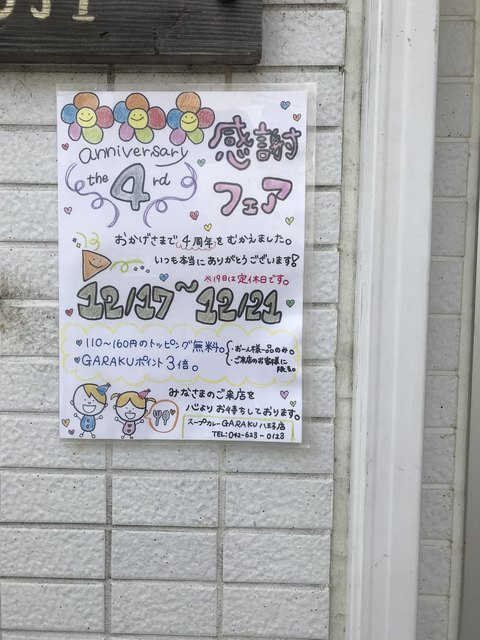 anniversary
the 4rd
感謝
フェア
おかげさまで4周年をむかえました。
いつも本当にありがとうございます!
※19日は定休日です。
12/17~12/21
♥110~160円のトッピング無料。
・お一人様一品のみ。
・ご来店のお客様に限る。
♥GARAKUポイント3倍。
みなさまのご来店を
心よりお待ちしております。
スープカレーGARAKU 八王子店
TEL:042-623-0123